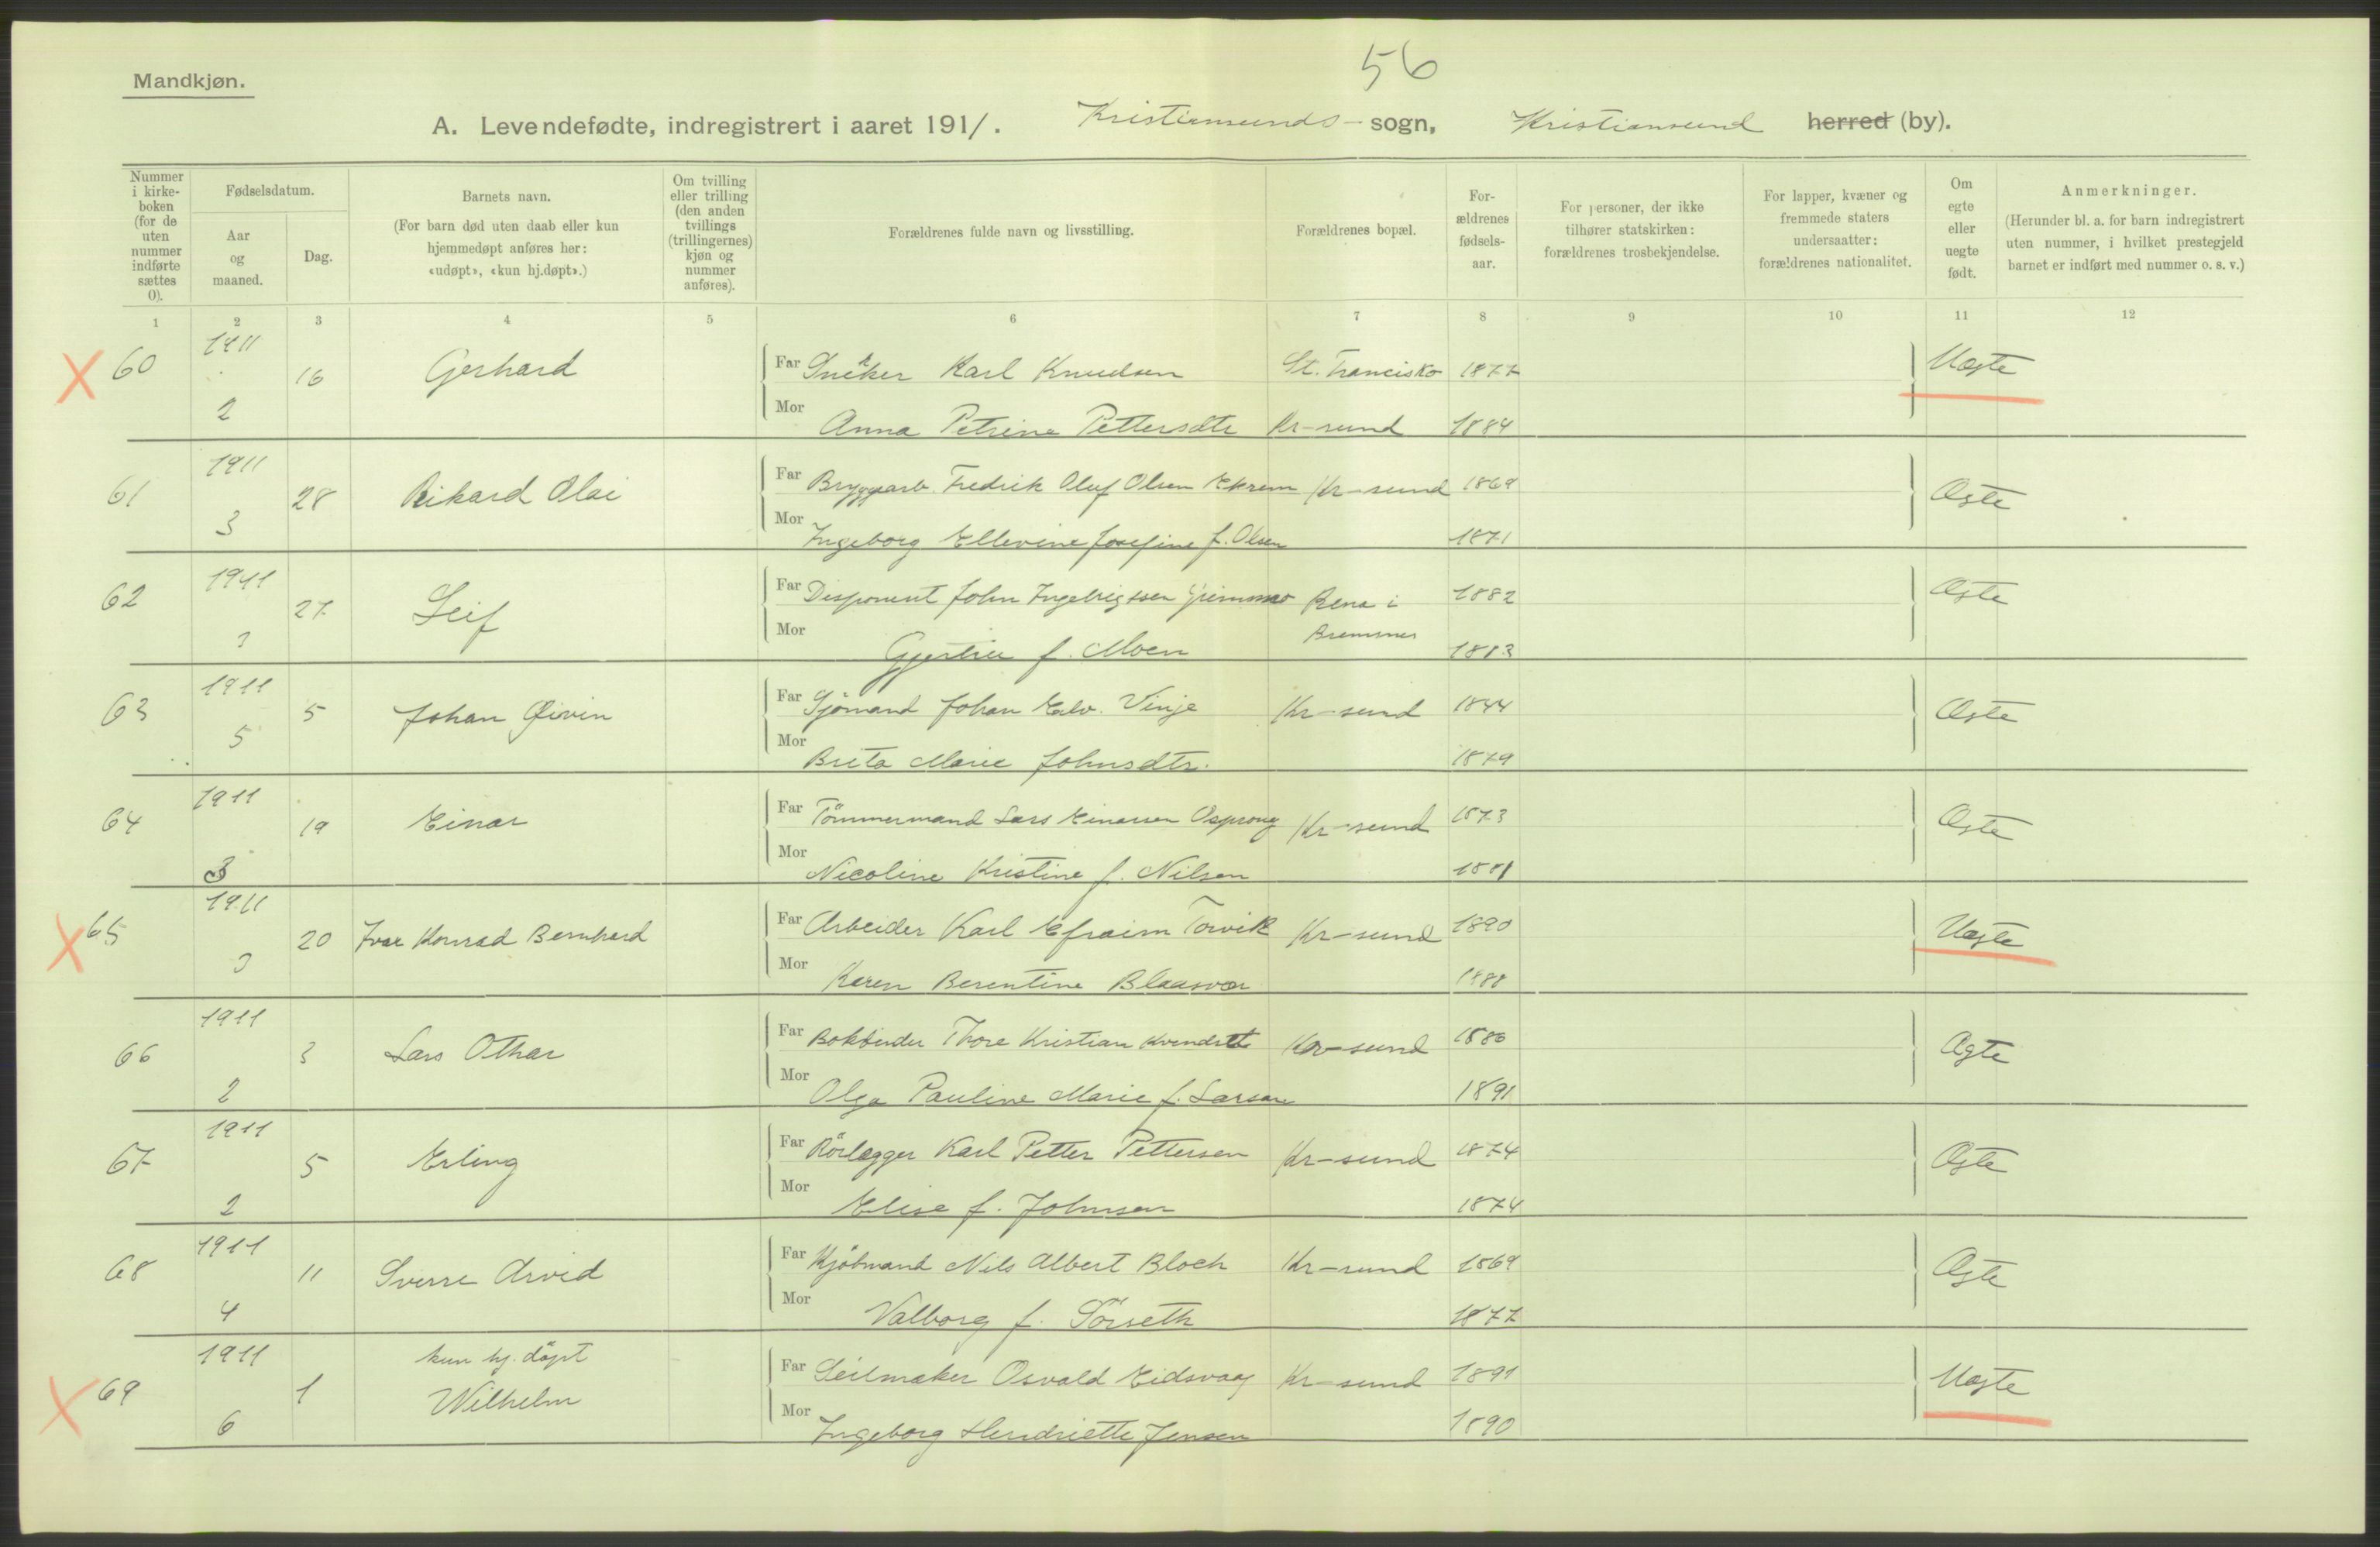 56
Mandkjøn.
A. Levendefødte, indregistrert i aaret 1911. Kristiansunds- sogn, Kristiansund herred (by).
Nummer i kirkeboken (for de uten nummer indførte sættes 0).
Fødselsdatum.
Aar og maaned.
Dag.
Barnets navn.
(For barn død uten daab eller kun hjemmedøpt anføres her: «udøpt», «kun hj.døpt».)
Om tvilling eller trilling (den anden tvillings (trillingernes) kjøn og nummer anføres).
Forældrenes fulde navn og livsstilling.
Forældrenes bopæl.
Forældrenes fødselsaar.
For personer, der ikke tilhører statskirken: forældrenes trosbekjendelse.
For lapper, kvæner og fremmede staters undersaatter: forældrenes nationalitet.
Om egte eller uegte født.
Anmerkninger.
(Herunder bl. a. for barn indregistrert uten nummer, i hvilket prestegjeld barnet er indført med nummer o. s. v.)
1 2 3 4 5 6 7 8 9 10 11 12
X 60 1911 2 16 Gerhard Far Snekker Karl Knudsen St. Francisko 1877 Uægte
Mor Anna Petrine Pettersdtr Kr-sund 1884
61 1911 3 28 Rikard Olai Far Bryggearb. Fredrik Oluf Olsen Ekrem Kr-sund 1869 Ægte
Mor Ingeborg Ellevine Josefine f. Olsen 1871
62 1911 3 27 Leif Far Disponent John Ingebrigtsen Rena i 1882 Ægte
Mor f. Moen Bremsnes 1883
63 1911 5 5 Johan Øivin Far Sjömand Johan Edv. Vinje Kr-sund 1844 Ægte
Mor Brita Marie Johnsdtr. 1879
64 1911 3 19 Einar Far Tömmermand Lars Einarsen Kr-sund 1873 Ægte
Mor Nicoline Kristine f. Nilsen 1881
X 65 1911 3 20 Ivar Konrad Bernhard Far Arbeider Karl Efraim Torvik Kr-sund 1890 Uægte
Mor Karen Berentine Blaasvær 1888
66 1911 2 3 Lars Othar Far Bokbinder Thore Kristian Kvendset Kr-sund 1880 Ægte
Mor Olga Pauline Marie f. Larsen 1891
67 1911 2 5 Erling Far Rörlægger Karl Petter Pettersen Kr-sund 1874 Ægte
Mor Elise f. Johnsen 1874
68 1911 4 11 Sverre Arvid Far Kjöbmand Nils Albert Bloch Kr-sund 1869 Ægte
Mor Valborg f. Sörseth 1877
X 69 1911 6 1 kun hj. döpt
Wilhelm Far Seilmaker Osvald Eidsvaag Kr-sund 1891 Uægte
Mor Ingeborg Hendriette Jensen 1890